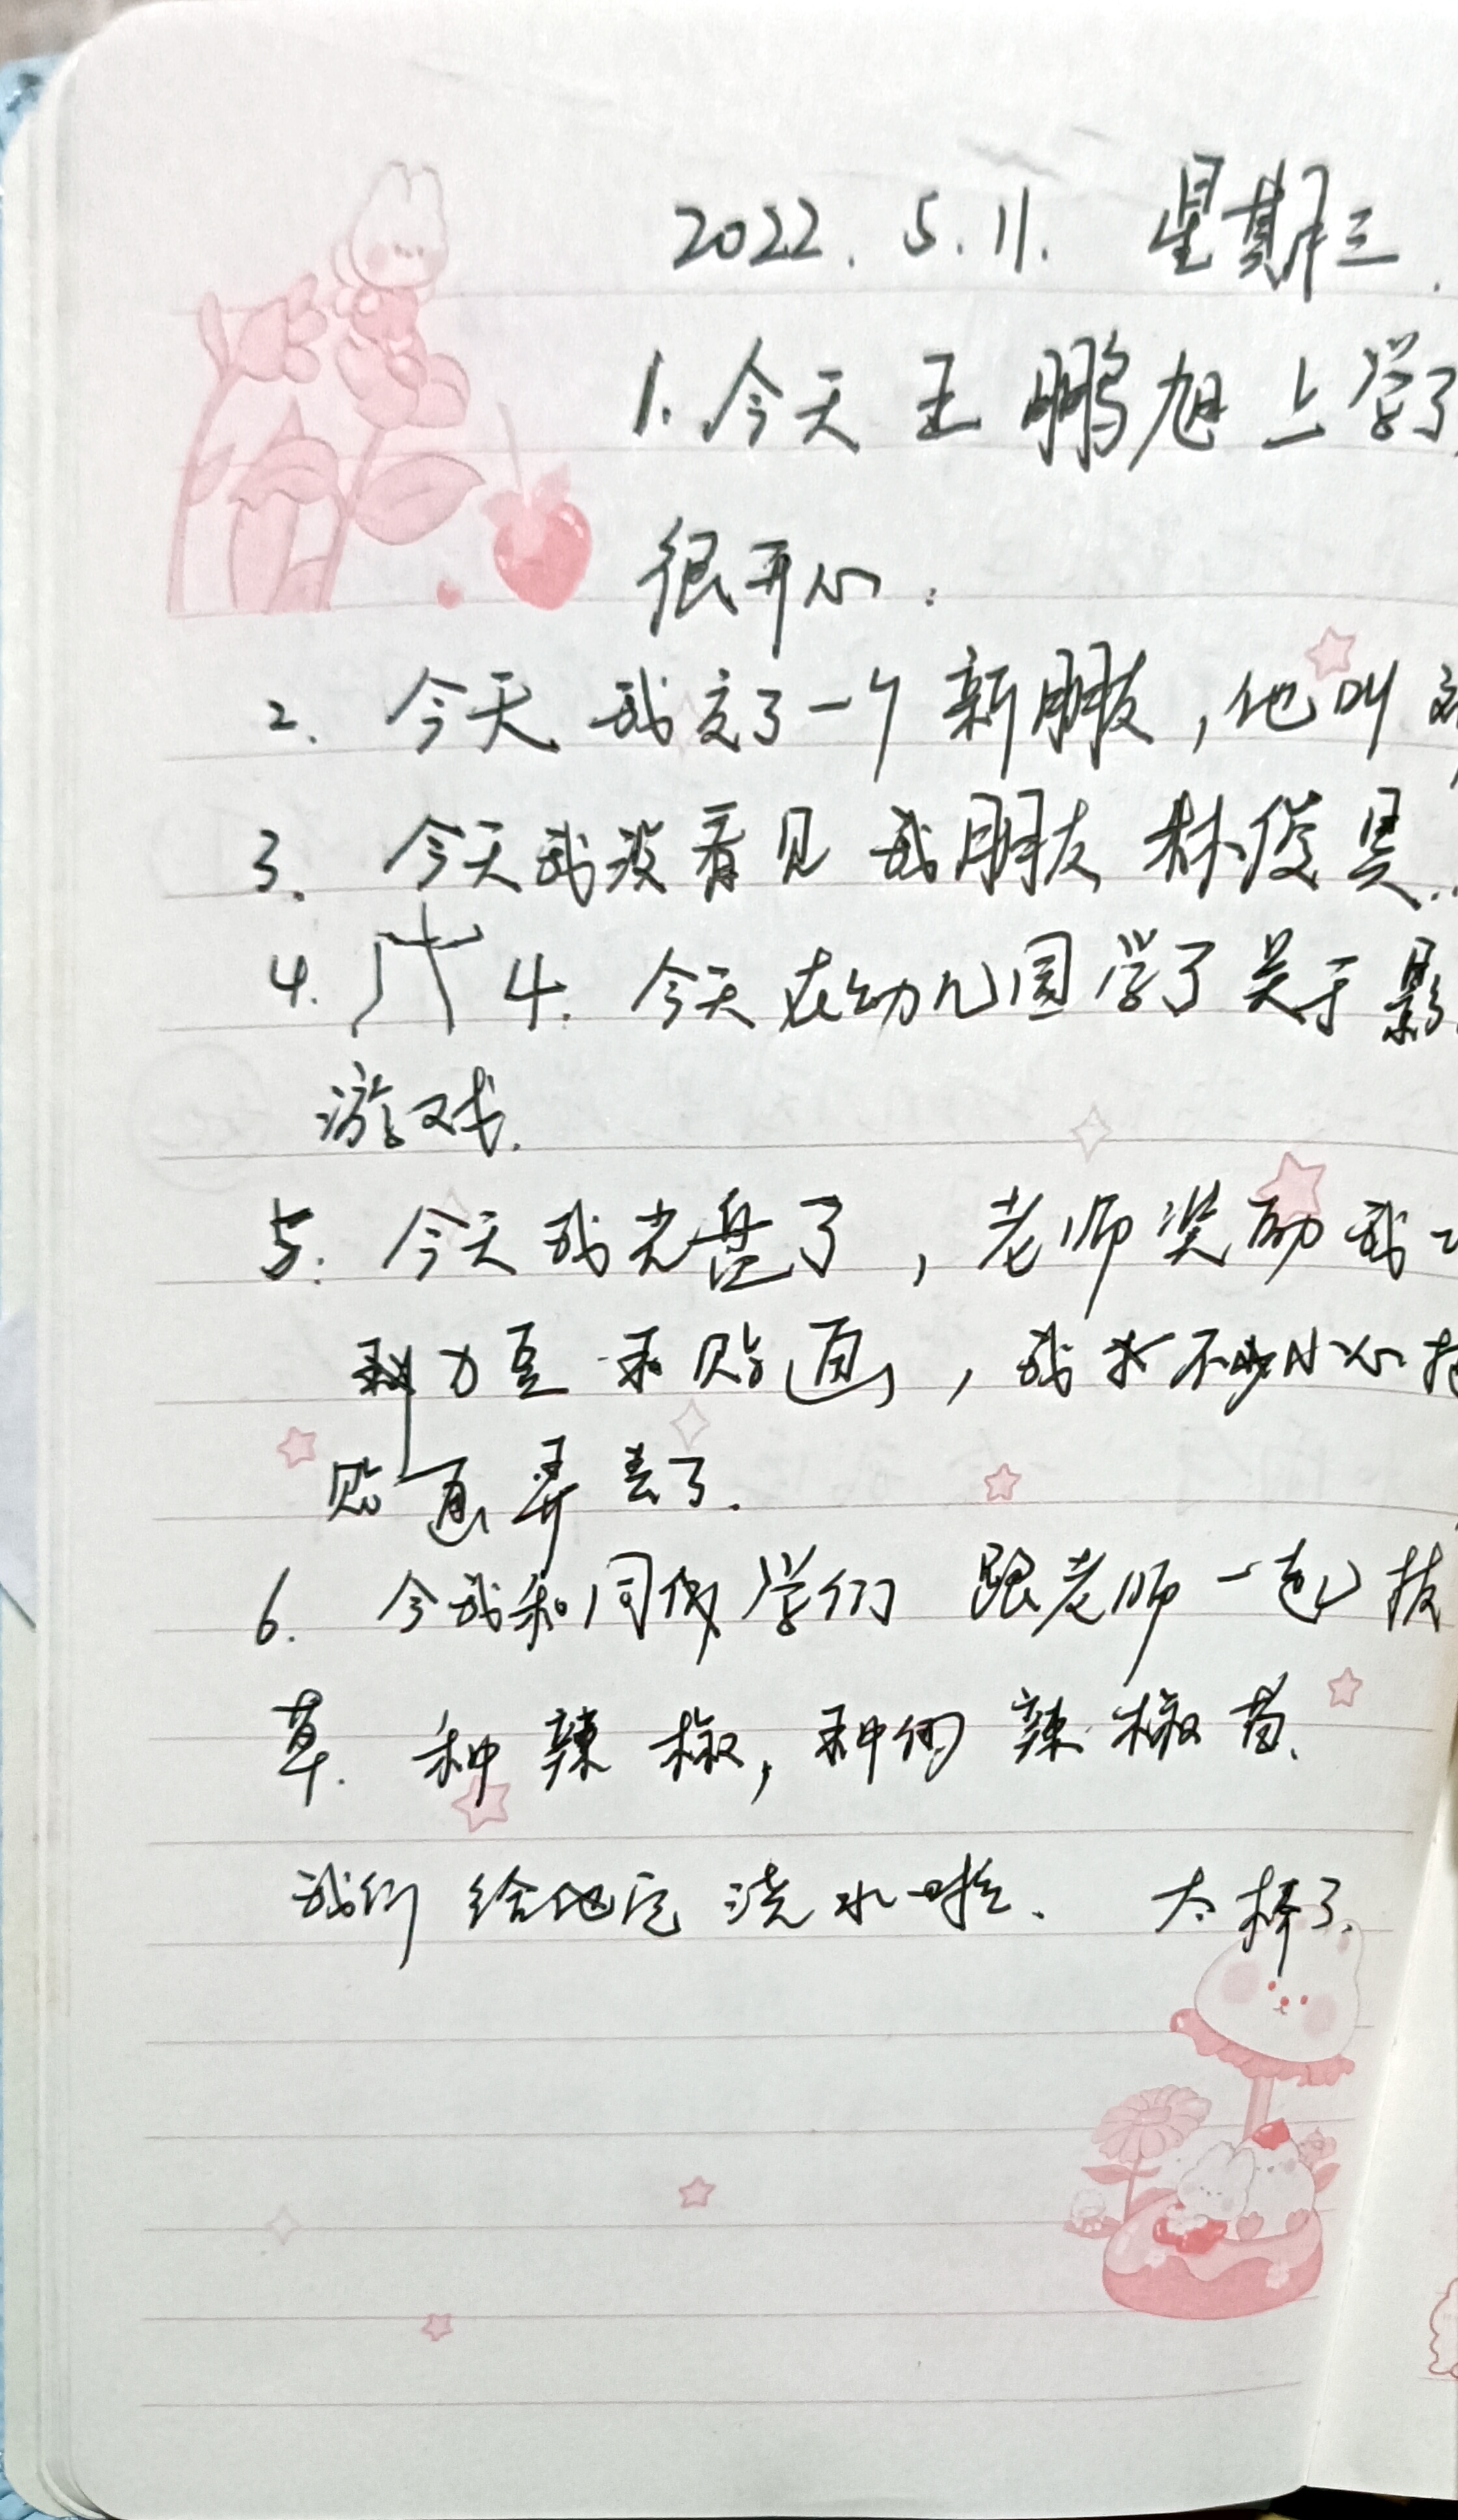 2022.5.11. 星期三.
1. 今天 王鹏旭 上学了.
很开心.
2. 今天 我交了一个 新朋友,他叫
3. 今天我没看见 我朋友 林俊昊..
4. 4. 今天在幼儿园学了关于影
游戏.
5. 今天我光盘了,老师奖励我
力豆 和贴画,我 不小心
贴画弄丢了.
6. 今我和同 学们 跟老师一起 拔
草. 种辣椒,种的 辣椒苗.
我们 给它 浇水啦. 太棒了.